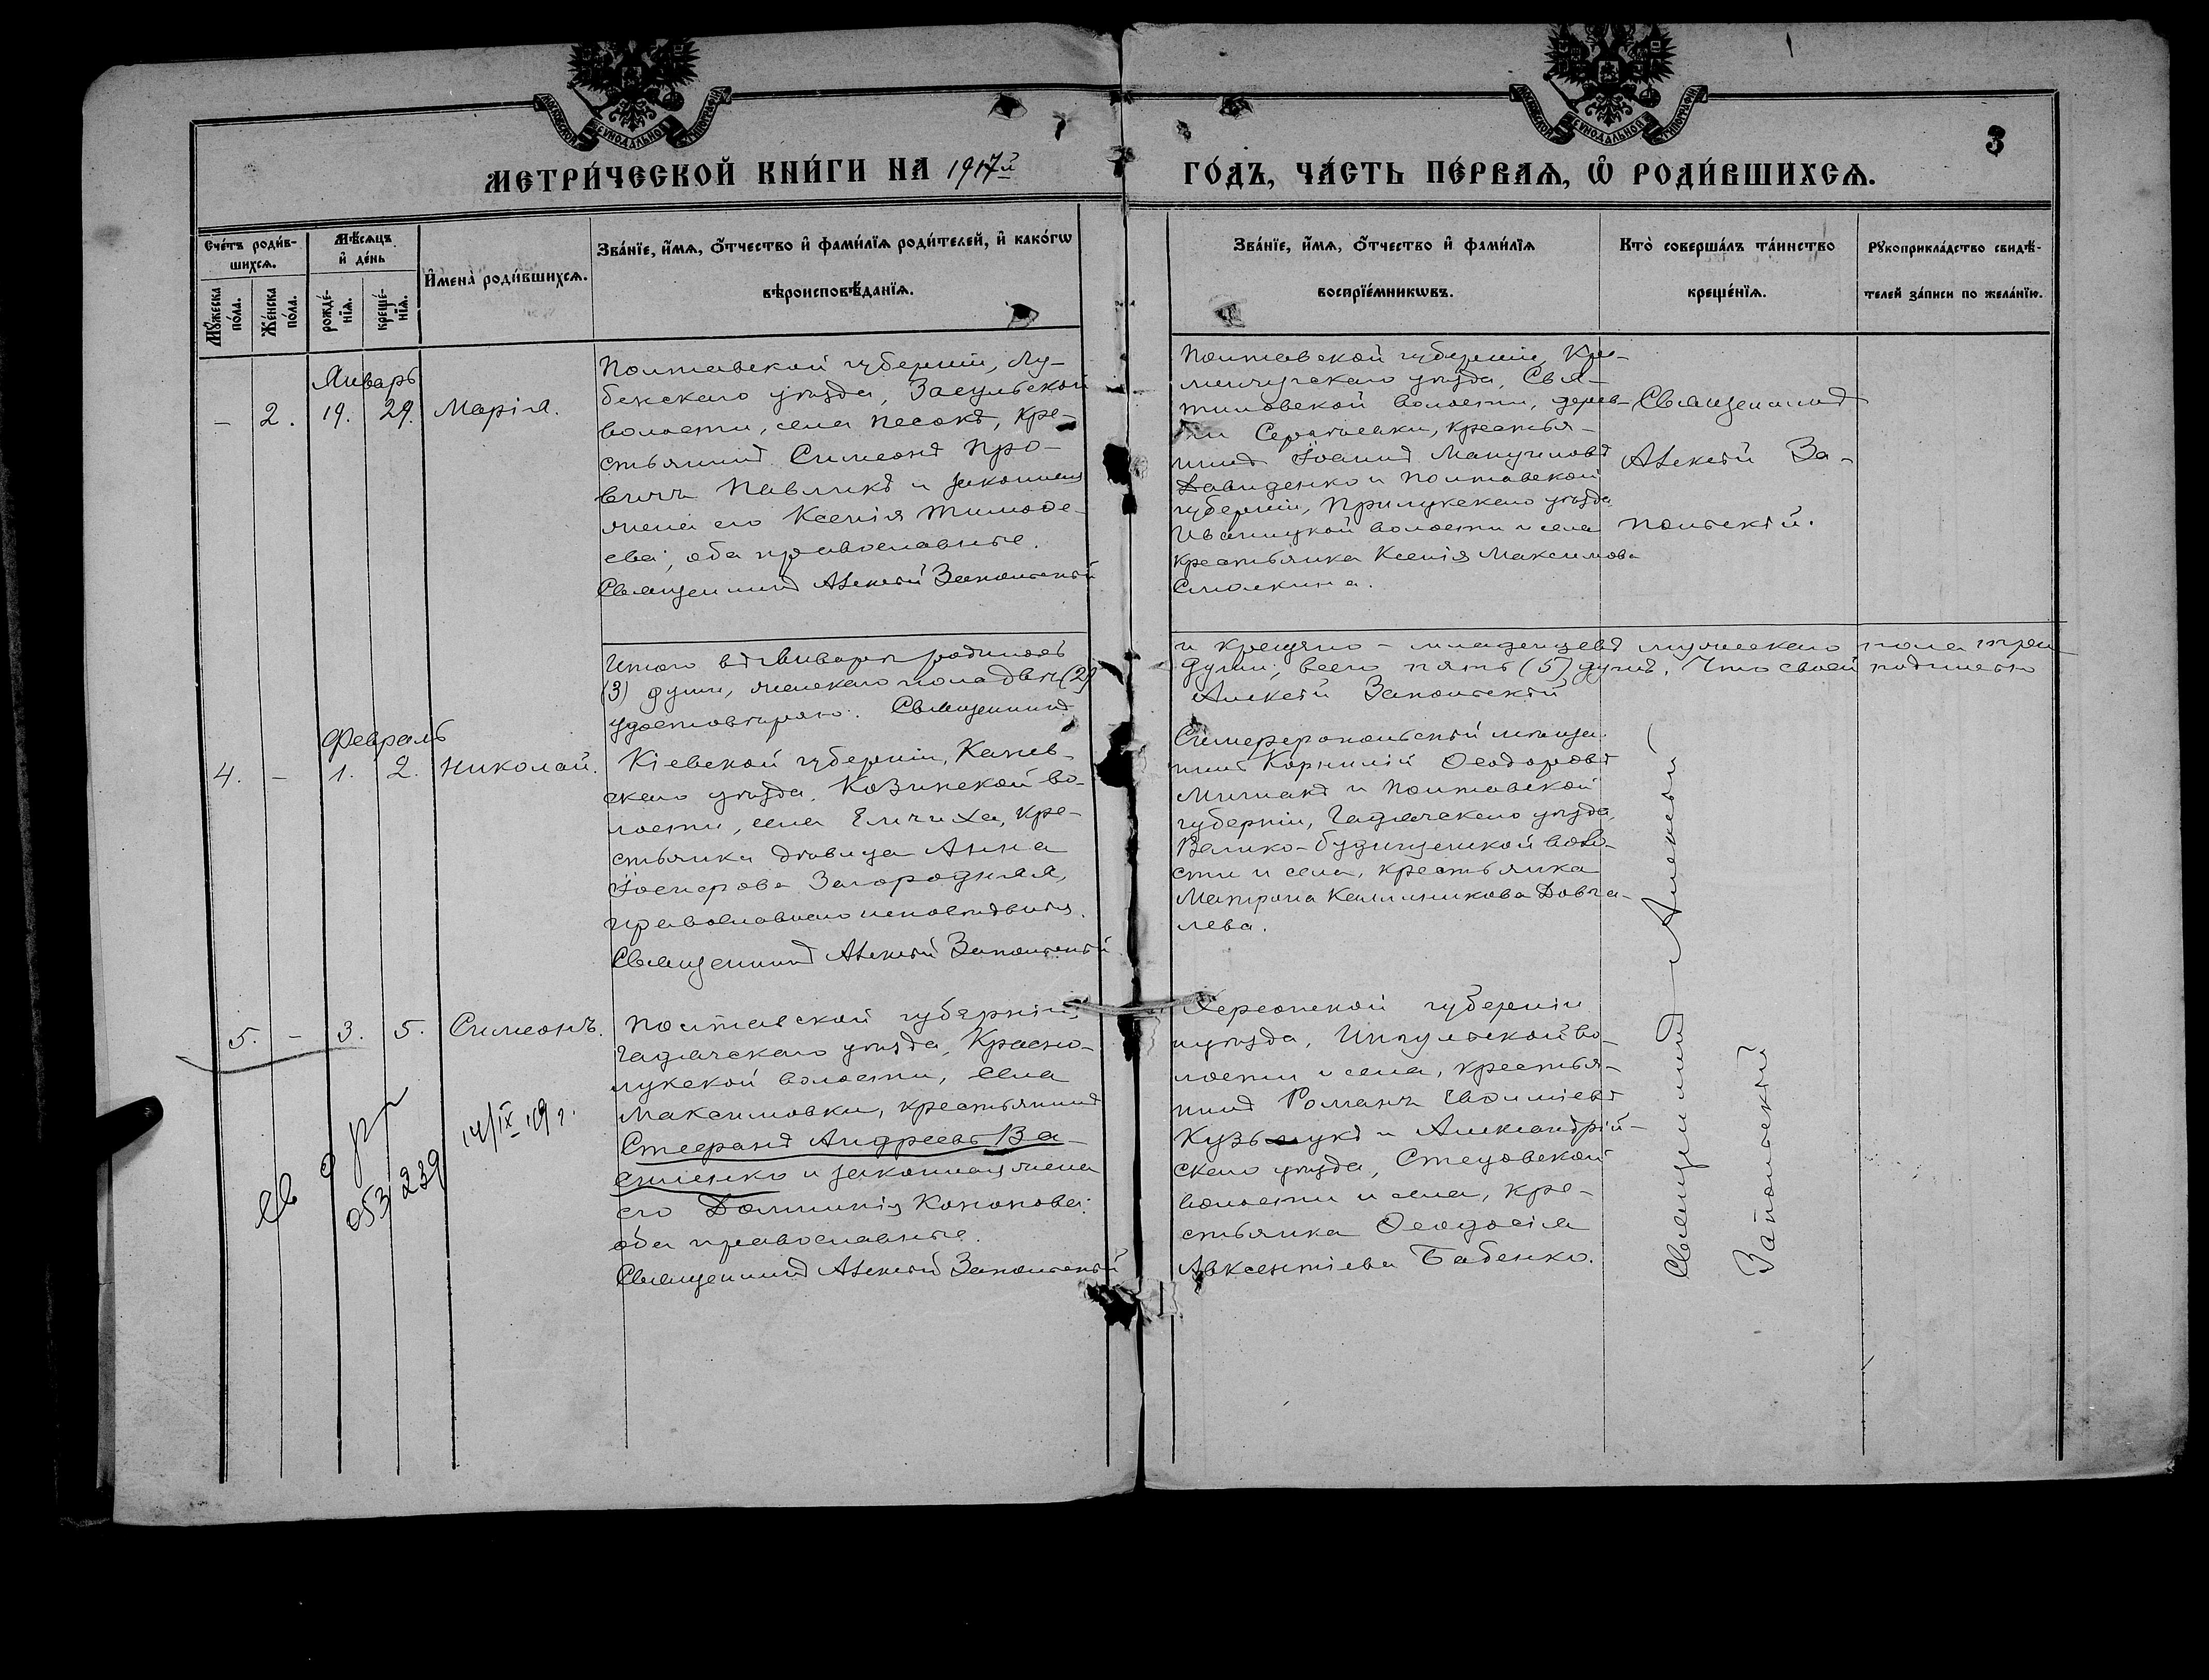 МОСКОВСКОЙ СѴНОДАЛЬНОЙ ТИПОГРАФІИ
МОСКОВСКОЙ СѴНОДАЛЬНОЙ ТИПОГРАФІИ
3
МЕТРИ́ЧЕСКОЙ КНИ́ГИ НА 1917й
ГО́ДЪ, ЧА́СТЬ ПЕ́РВАѦ, Ѡ҆ РОДИ́ВШИХСѦ.
Сче́тъ роди́в-
шихсѧ.
Мѣ́сѧцъ
и҆ де́нь
Мꙋ́жеска
по́ла.
Же́нска
по́ла.
рожде́-
нїѧ.
креще́-
нїѧ.
И҆мена̀ роди́вшихсѧ.
Зва́нїе, и҆́мѧ, ѻ҆́тчество и҆ фами́лїѧ роди́телей, и҆ како́гѡ
вѣроисповѣ́данїѧ.
Зва́нїе, и҆́мѧ, ѻ҆́тчество и҆ фами́лїѧ
воспрїе́мникѡвъ.
Кто̀ соверша́лъ та́инство
креще́нїѧ.
Рꙋкоприкла́дство свидѣ́-
телей за́писи по жела́нїю.
Январь
- 2. 19. 29. Марія.
Полтавской губерніи, Лу-
бенскаго уѣзда, Засульской
волости, села Песокъ, кре-
стьянинъ Симеонъ
Павликъ и законная
жена его Ксенія Тимоѳе-
ева; оба православные.
Священникъ Алексѣй Запольскій
Полтавской губерніи, Кре-
менчугскаго уѣзда,
волости, дерев-
ни крестья-
нинъ Іоаннъ
Давиденко и Полтавской
губерніи, Прилукскаго уѣзда
Иваницкой волости и села
крестьянка Ксенія Максимова
Смолкина.
Священникъ
Алексѣй За-
польскій.
Итого въ Январѣ родилось
(3) души, женскаго пола двѣ (2)
удостовѣряю. Священникъ
и крещено - младенцевъ мужескаго пола три
души; всего пять (5) душъ. Что своей подписью
Алексѣй Запольскій
Февраль
4. - 1. 2. Николай.
Кіевской губерніи, Канев-
скаго уѣзда, Козинской во-
лости, села Емчиха, кре-
стьянка дѣвица Анна
Іосифова Загородняя,
православнаго исповѣданія.
Священникъ Алексѣй Запольскій
Симферопольскій мѣща-
нинъ Корнилій Ѳеодоровъ
и Полтавской
губерніи, Гадячскаго уѣзда,
Велико-будищенской воло-
сти и села, крестьянка
Матрона Каллиникова Довга-
лева.
5. - 3. 5. Симеонъ.
Полтавской губерніи,
Гадячскаго уѣзда, Красно-
лукской волости, села
Максимовки, крестьянинъ
Стефанъ Андреевъ Ва-
силенко и законная жена
его Домникія Кононова:
оба православные.
Священникъ Алексѣй Запольскій
Херсонской губерніи
и уѣзда, Ингульской во-
лости и села, крестья-
нинъ Романъ
Кузьмукъ и Александрій-
скаго уѣзда, Стецовской
волости и села, кре-
стьянка Ѳеодосія
Авксентіева Бабенко.
Священникъ Алексѣй
Запольскій
14/IX 19 г.
239